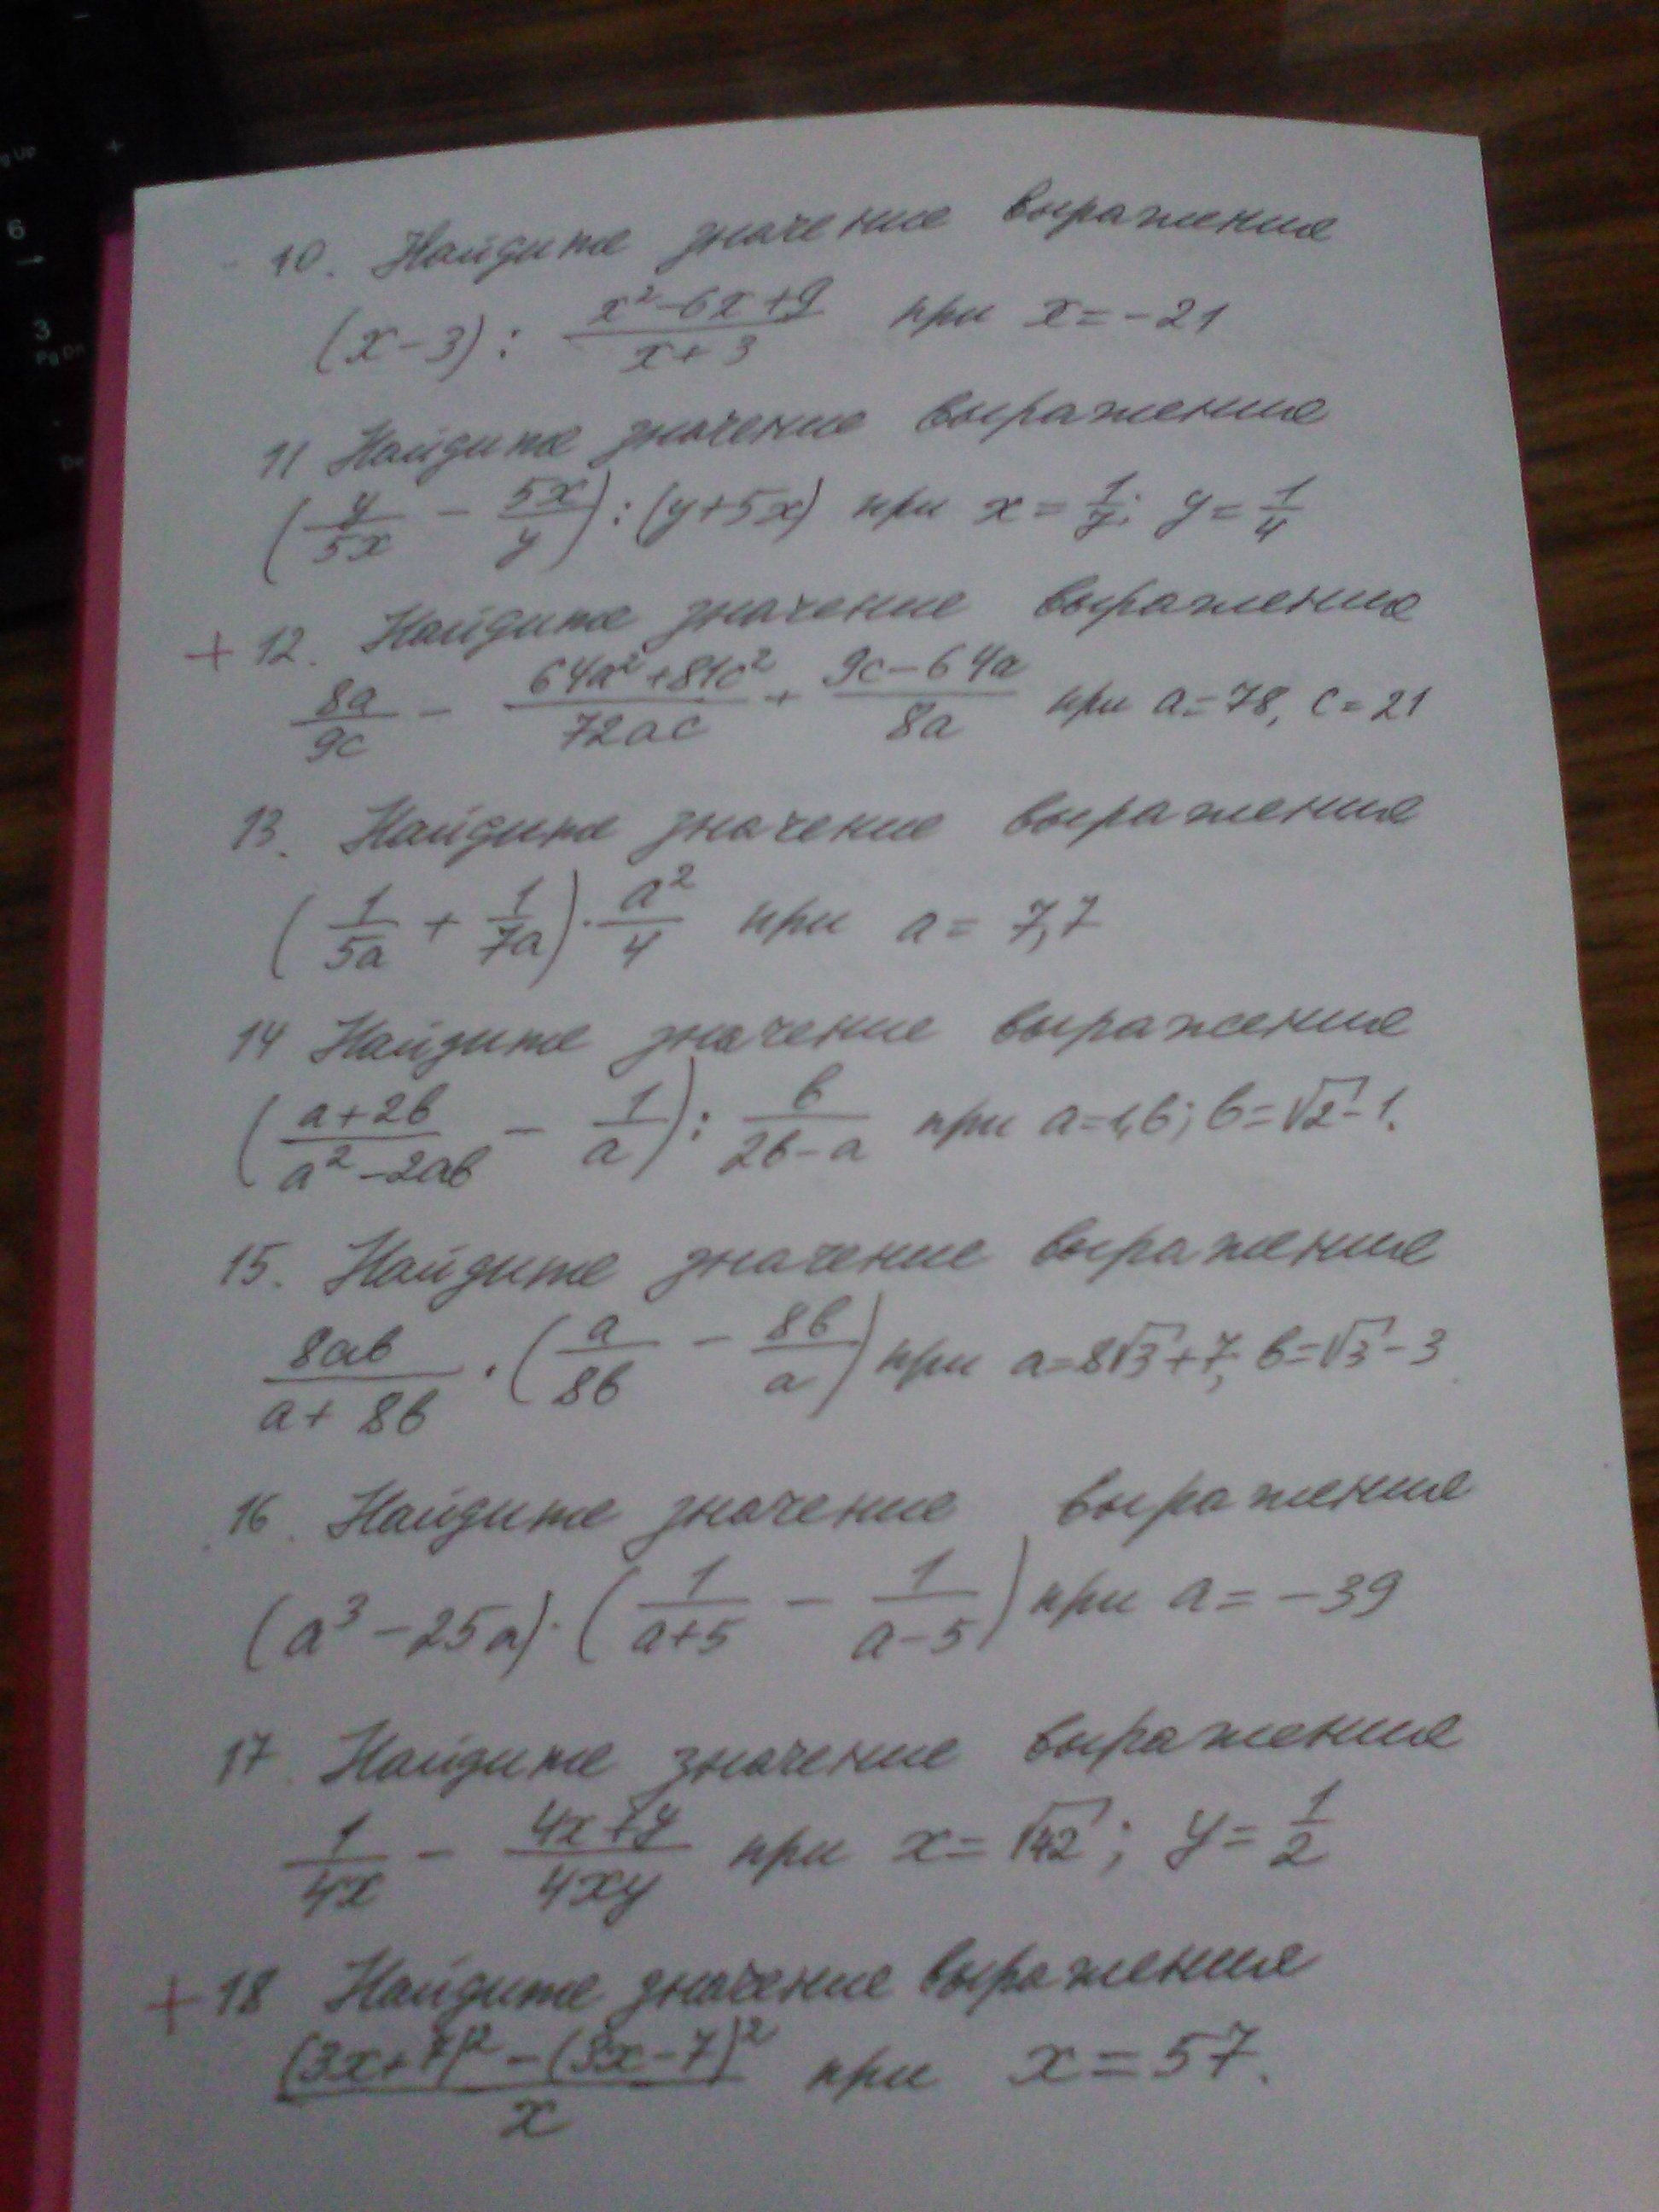 g Up
+
6
→
3
Pg Dn
.
De
10. Найдите значение выражения
(x-3) : \frac{x²-6x+9}{x+3} при x=-21
11 Найдите значение выражения
(\frac{y}{5x} - \frac{5x}{y}) : (y+5x) при x = \frac{1}{7}; y = \frac{1}{4}
+ 12. Найдите значение выражения
\frac{8a}{9c} - \frac{64a²+81c²}{72ac} + \frac{9c-64a}{8a} при a=78, c=21
13. Найдите значение выражения
(\frac{1}{5a} + \frac{1}{7a}) · \frac{a²}{4} при a = 7,7
14 Найдите значение выражения
(\frac{a+2b}{a²-2ab} - \frac{1}{a}) : \frac{b}{2b-a} при a=1,6; b=√2-1.
15. Найдите значение выражения
\frac{8ab}{a+8b} · (\frac{a}{8b} - \frac{8b}{a}) при a=8√3+7, b=√3-3
16. Найдите значение выражения
(a³-25a) · (\frac{1}{a+5} - \frac{1}{a-5}) при a = -39
17. Найдите значение выражения
\frac{1}{4x} - \frac{4x+y}{4xy} при x=√42; y = \frac{1}{2}
+ 18 Найдите значение выражения
\frac{(3x+7)² - (3x-7)²}{x} при x=57.